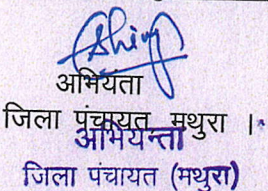 अभियंता
जिला पंचायत मथुरा ।
अभियन्ता
जिला पंचायत (मथुरा)